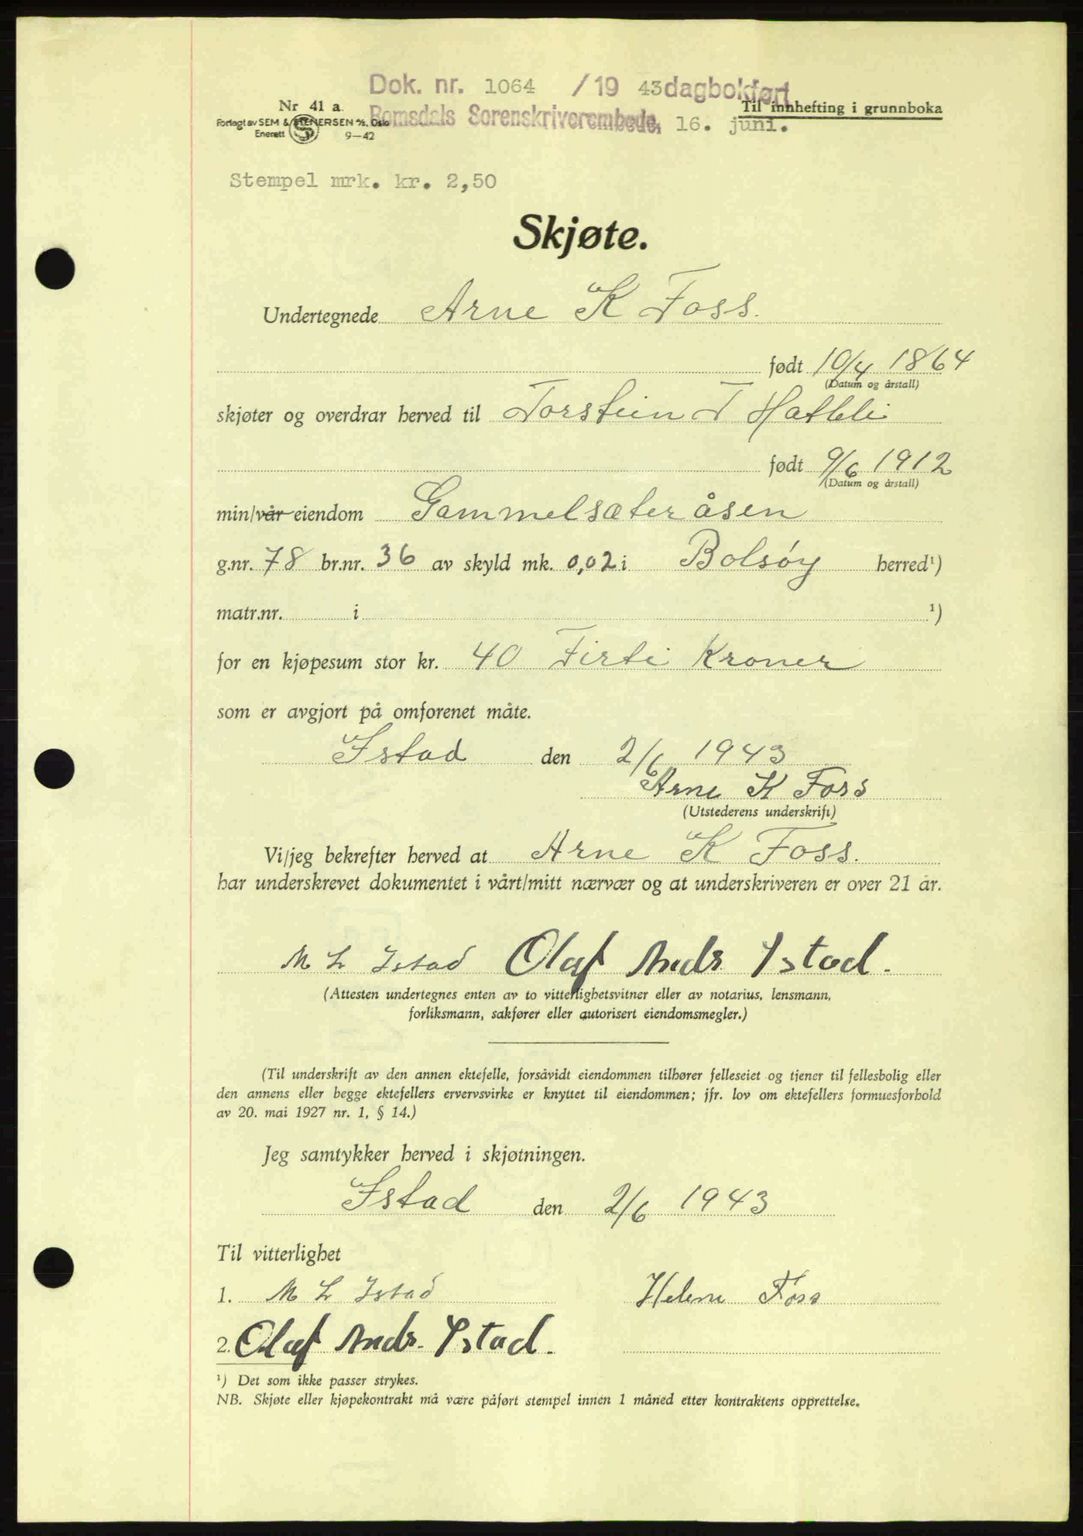 Dok. nr. 1064 /19 43 dagbokført
Nr 41 a.
Til innhefting i grunnboka
Forlagt av SEM & STENERSEN A/S, Oslo
Romsdals Sorenskriverembede, 16. juni.
Enerett S 9–42
Stempel mrk. kr. 2,50
Skjøte.
Undertegnede Arne K Foss.
født 10/4 1864
(Datum og årstall)
skjøter og overdrar herved til Torstein T Hatlli
født 9/6 1912
(Datum og årstall)
min/vår eiendom Gammelsæteråsen
g.nr. 78 br.nr. 36 av skyld mk. 0,02 i Bolsøy herred¹)
matr.nr. i ¹)
for en kjøpesum stor kr. 40 Firti Kroner
som er avgjort på omforenet måte.
Istad den 2/6 1943
Arne K Foss
(Utstederens underskrift)
Vi/jeg bekrefter herved at Arne K Foss.
har underskrevet dokumentet i vårt/mitt nærvær og at underskriveren er over 21 år.
M L Istad Olaf Andr Istad.
(Attesten undertegnes enten av to vitterlighetsvitner eller av notarius, lensmann,
forliksmann, sakfører eller autorisert eiendomsmegler.)
(Til underskrift av den annen ektefelle, forsåvidt eiendommen tilhører felleseiet og tjener til fellesbolig eller
den annens eller begge ektefellers ervervsvirke er knyttet til eiendommen; jfr. lov om ektefellers formuesforhold
av 20. mai 1927 nr. 1, § 14.)
Jeg samtykker herved i skjøtningen.
Istad den 2/6 1943
Til vitterlighet
1. M L Istad Helene Foss
2. Olaf Andr. Istad.
¹) Det som ikke passer strykes.
NB. Skjøte eller kjøpekontrakt må være påført stempel innen 1 måned etter kontraktens opprettelse.